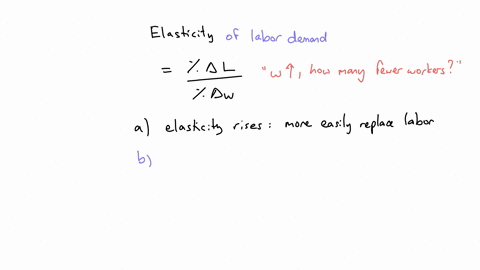 Elasticity of labor demand
= % Δ L "w ↑, how many fewer workers?"
% Δ w
a) elasticity rises : more easily replace labor
b)